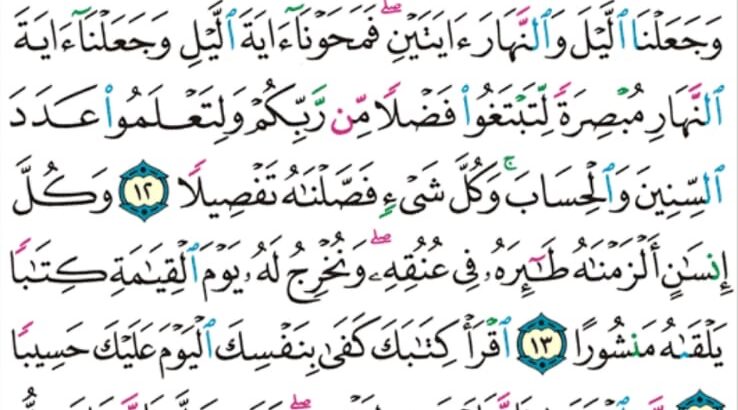 وَجَعَلْنَا ٱلَّيْلَ وَٱلنَّهَارَ ءَايَتَيْنِ ۖ فَمَحَوْنَآ ءَايَةَ ٱلَّيْلِ وَجَعَلْنَآ ءَايَةَ
ٱلنَّهَارِ مُبْصِرَةً لِّتَبْتَغُوا۟ فَضْلًا مِّن رَّبِّكُمْ وَلِتَعْلَمُوا۟ عَدَدَ
ٱلسِّنِينَ وَٱلْحِسَابَ ۚ وَكُلَّ شَىْءٍ فَصَّلْنَٰهُ تَفْصِيلًا ١٢ وَكُلَّ
إِنسَٰنٍ أَلْزَمْنَٰهُ طَٰٓئِرَهُۥ فِى عُنُقِهِۦ ۖ وَنُخْرِجُ لَهُۥ يَوْمَ ٱلْقِيَٰمَةِ كِتَٰبًا
يَلْقَىٰهُ مَنشُورًا ١٣ ٱقْرَأْ كِتَٰبَكَ كَفَىٰ بِنَفْسِكَ ٱلْيَوْمَ عَلَيْكَ حَسِيبًا